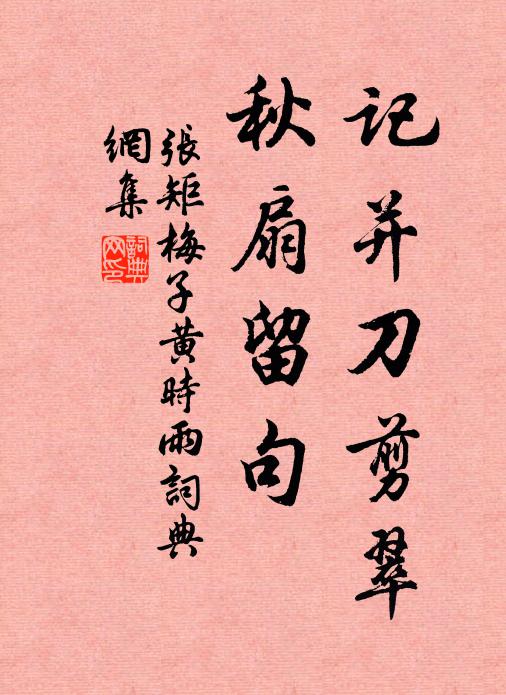 記并刀剪翠
秋扇留句
張矩梅子黄時雨詞典
網集
詞典
网印